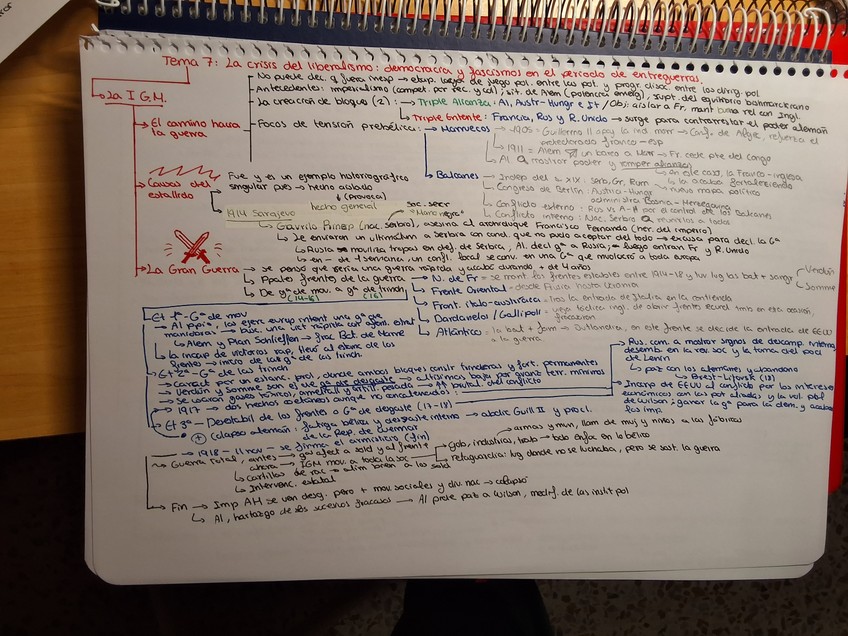 Tema 7: La crisis del liberalismo: democracia y fascismo en el periodo de entreguerras.
→ La I G.M.
→ El camino hacia la guerra
No puede dec. q fuera inesp → etap. larga de juego pol. entre las pot. y progr. disoc. entre los dirig. pol
Antecedentes: imperialismo (compet. por rec. y cal), sit. de Alem (potencia emerg), supt. del equilibrio bismarckiano
La creación de bloques (2): → Triple Alianza: Al, Austr-Hungr e It / Obj: aislar a Fr, mant buena rel con Ingl.
↳ Triple Entente: Francia, Rus y R. Unido → surge para contrarrestar el poder alemán
Focos de tensión prebélica: → Marruecos → 1905 = Guillermo II apoy la ind. marr → Conf. de Algec, refuerza el protectorado franco-esp
1911 = Alem un barco a Marr → Fr. cede pte del Congo
Al. Q mostrar poder y romper alianzas
en este caso, la Franco-inglesa
↳ la acaba fortaleciendo
Balcanes → Indep del s. XIX: Serb, Gr, Rum
Congreso de Berlín: Austria-Hungr administra Bosnia-Herzegovina
nuevo mapa político
Conflicto externo: Rus vs A-H por el control de los Balcanes
Conflicto interno: Nac. Serbio Q reunirlos a todos
→ Causas del estallido
Fue y es un ejemplo historiográfico singular pues → hecho aislado
↓ (provoca)
hecho general
1914 Sarajevo
soc. secr "Mano negra"
↳ Gavrilo Princip (nac. serbio), asesina al archiduque Francisco Fernando (her. del imperio)
↳ Se enviaron un ultimátum a Serbia con cond. que no pudo aceptar del todo → excusa para decl. la Gª
↳ Rusia → moviliza tropas en def. de Serbia, Al. decl gª a Rusia, luego entran Fr y R. Unido
↳ en - de 1 semana, un confl. local se conv. en una Gª que involucró a toda europa
→ La Gran Guerra → se pensó que sería una guerra rápida y acabó durando + de 4 años
↳ Ppales frentes de la guerra → N. de Fr = se mont. los frentes estables entre 1914-18 y tuv lug las bat + sangr
Verdún
Somme
Frente Oriental = desde Prusia hasta Ucrania
Front. italo-austriaca = tras la entrada de Italia en la contienda
Dardanelos / Gallipoli = vieja táctica ingl. de abrir frentes ecund. tmb en esta ocasión, fracasaron
Atlántico = la bat + fam → Jutlandia, en este frente se decide la entrada de EEUU a la guerra
↳ De gª de mov. a gª de trinch,
(14-16) (16)
Et 1ª - Gª de mov
→ Al ppio, los ejerc europ intent una gª de maniobras → busc. una vict rápida con ofens. estrat
↳ Alem y Plan Schlieffen → frac Bat. de Marne
↳ la incap de victorias rap, llevó al estanc de los frentes → inicio de las gª de las trinch
Et 2ª - Gª de las trinch
→ Caract por un estanc. prol, donde ambos bloques constr trincheras y fort. permanentes
→ Verdún y Somme son ej de gª de desgaste → altísimas bajas por gnanz terr. mínimos
→ se usaron gases tóxicos, ametrall y artill. pesada → ↑↑ brutal. del conflicto
→ 1917 → dos hechos coetáneos aunque no concatenados:
Rus. com. a mostrar signos de descomp. interna, desemb. en la rev. soc y la toma del pod de Lenin
↳ paz con los alemanes y abandono
↳ Brest-Litovsk (18)
→ Incorp de EEUU al conflicto por los intereses económicos con las pot aliadas y la vol. pol de wilson: ganar la gª para la dem. y acabar los imp
Et 3ª - Desestabil de los frentes o Gª de desgaste (17-18)
(+) Colapso alemán: fatiga bélica y desgaste interno → abdic Guill. II y procl. de la Rep. de Weimar
→ 1918 - 11 nov → se firma el armisticio (fin)
→ Guerra total, antes → gª afect a sold y al frente
ahora → IGM mov. a toda la soc → gob, industrias, trab → todo enfoc en lo bélico
armas y mun, llam de muj y niños a las fábricas
retaguardia: lug donde no se luchaba, pero se sost. la guerra
↳ cartillas de rac → alim bdan a los sold
↳ Intervenc. estatal
→ Fin → Imp AH se ven desg. pero + mov. sociales y div. nac → colapso
↳ Al, hartazgo de sus sucesivos fracasos → Al pide paz a Wilson, modif. de las instit pol